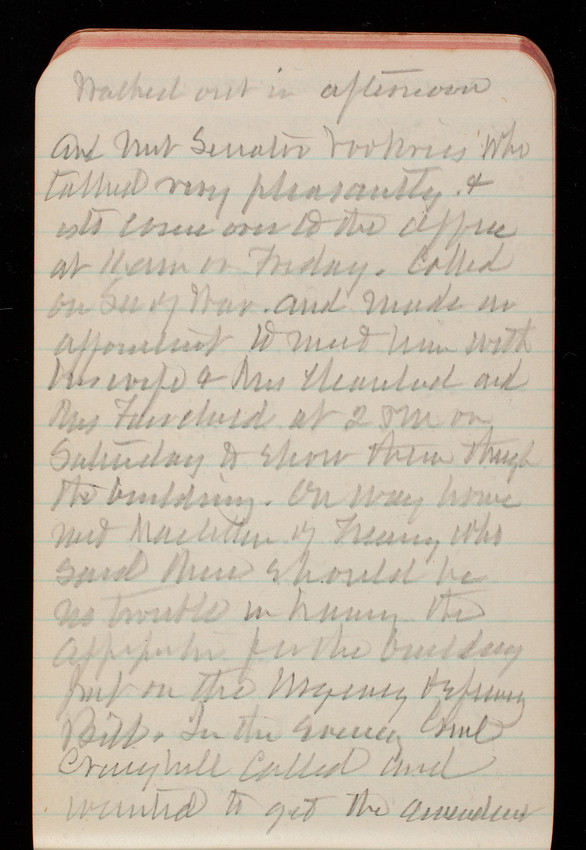 Walked out in afternoon
and met Senator Voorhies who
talked very pleasantly. &
is to come over to the office
at 11 am on Friday. Called
on Sec of War. and made an
appointment to meet him with
his wife & Mrs and
Mrs Fairchild at 2 PM on
Saturday to show them through
the building. On way home
met of Treasury who
said there should be
no trouble in having the
for the building
put on the Urgency Deficiency
Bill. In the evening Genl
Craighill called and
wanted to get the